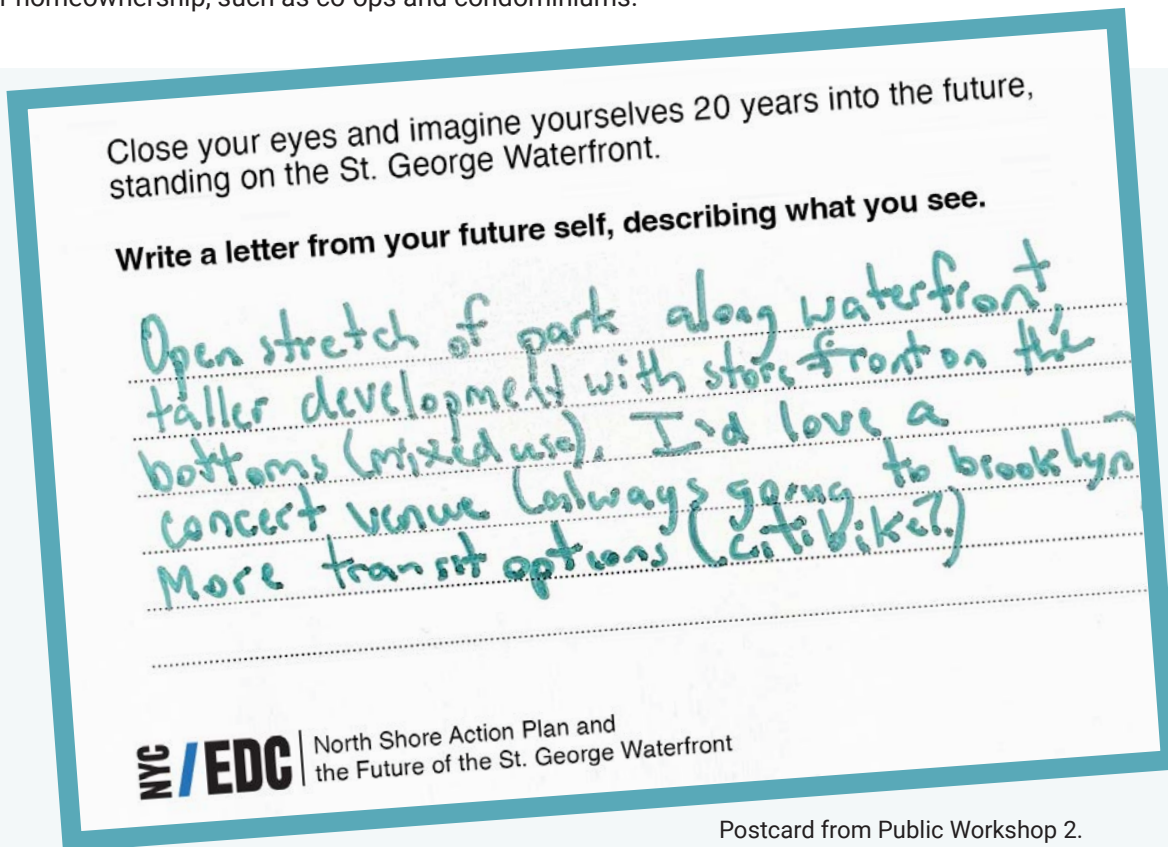 r homeownership, such as co-ops and condominiums.
Close your eyes and imagine yourselves 20 years into the future,
standing on the St. George Waterfront.
Write a letter from your future self, describing what you see.
Open stretch of park along waterfront,
taller development with store front on the
bottoms (mixed use). I'd love a
concert venue (always going to brooklyn)
More transit options (citibike?)
NYC
/EDC
North Shore Action Plan and
the Future of the St. George Waterfront
Postcard from Public Workshop 2.